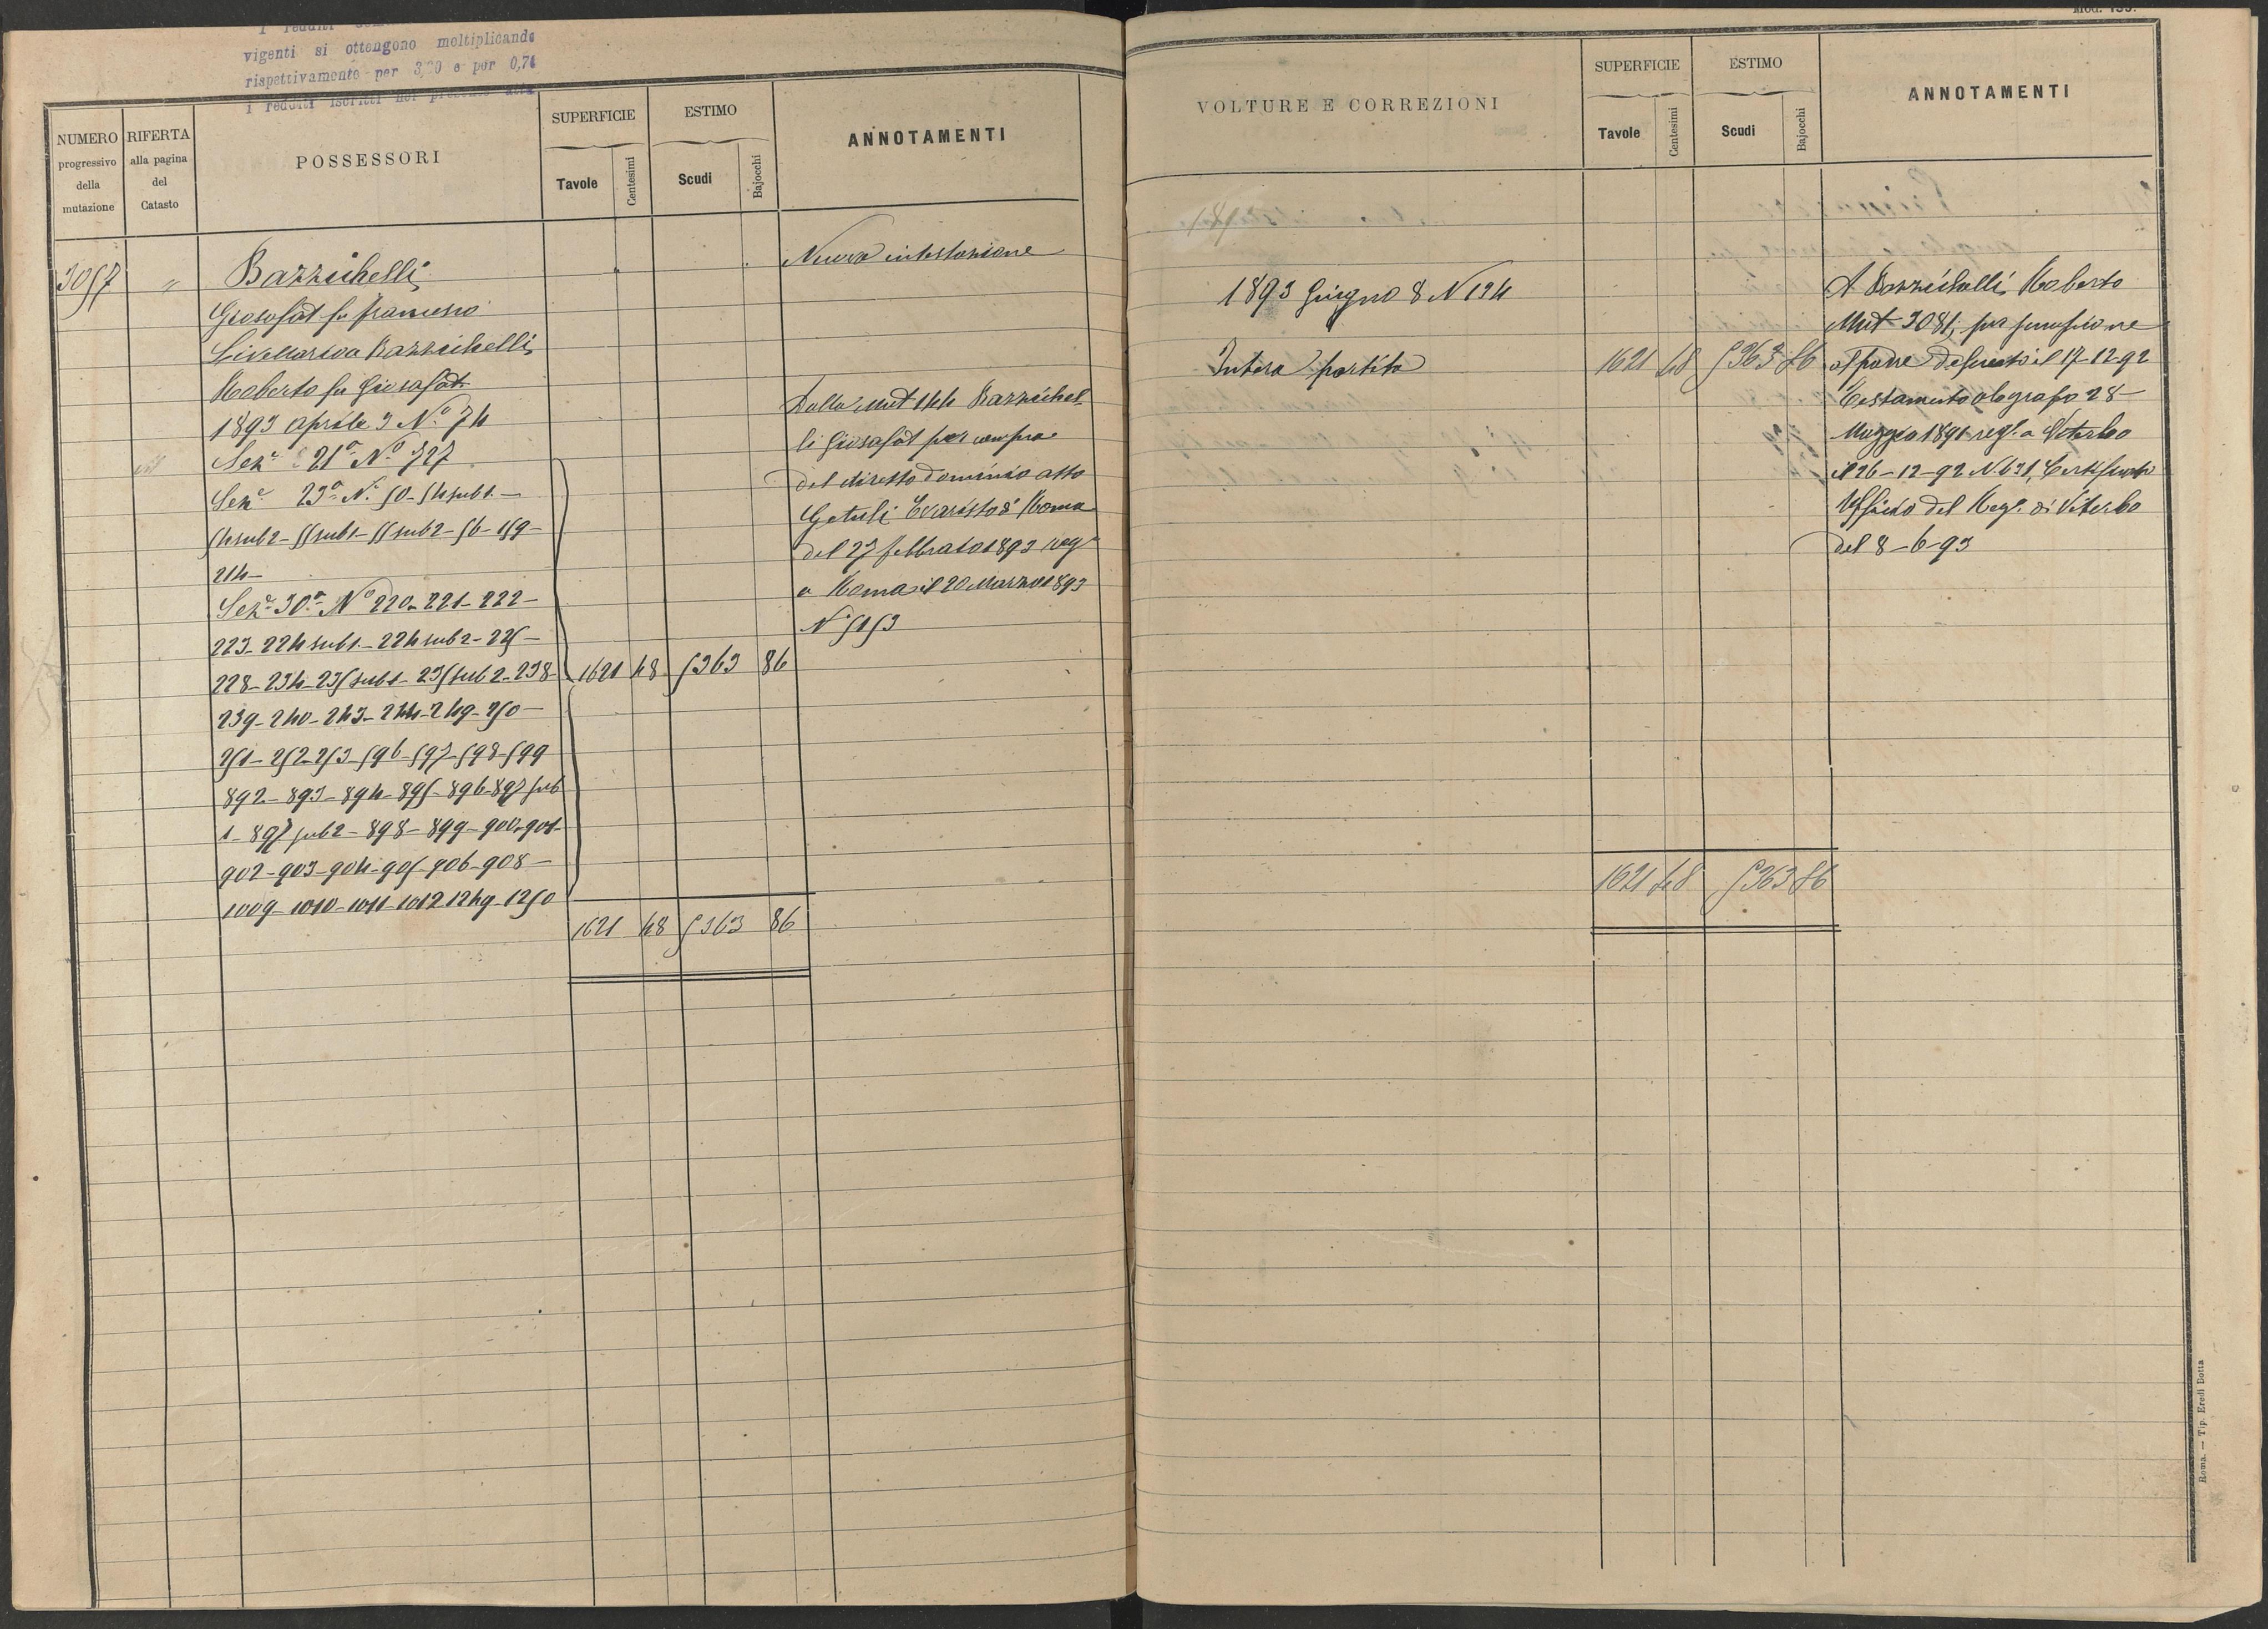 vigenti si ottengono moltiplicando
rispettivamente per 3,20 e per 0,74
i redditi iscritti nel presente
NUMERO
progressivo
della
mutazione
RIFERTA
alla pagina
del
Catasto
POSSESSORI
SUPERFICIE
Tavole
Centesimi
ESTIMO
Scudi
Bajocchi
ANNOTAMENTI
3057 " Bazzichelli
Giosafat fu Francesco
Livellario a Bazzichelli
Roberto fu Giosafat
1893 Aprile 3 N.º 74
Sezᵉ 21ª Nº 727
Sezᵉ 23ª Nº 50-54 sub 1-
54 sub 2-55 sub 1-55 sub 2-56-159-
214-
Sezᵉ 30ª Nº 220-221-222-
223-224 sub 1-224 sub 2-225-
228-234-235 sub 1-235 sub 2-238- 1621 48 5363 86
239-240-243-244-249-250-
251-252-253-596-597-598-599
892-893-894-895-896-897 sub
1-897 sub 2-898-899-900-901-
902-903-904-905-906-908-
1009-1010-1011-1012 1249-1250
1621 48 5363 86
Nuova intestazione
Dalla Mut 144 Bazzichel
li Giosafat per compra
del diretto dominio atto
Getuli Evaristo di Roma
del 27 febbraio 1893 reg
a Roma il 20 Marzo 1893
N 5153
Mod. 135.
VOLTURE E CORREZIONI
SUPERFICIE
Tavole
Centesimi
ESTIMO
Scudi
Bajocchi
ANNOTAMENTI
1893 Giugno 8 N 134
Intera partita 1621 48 5363 86
1621 48 5363 86
A Bazzichelli Roberto
Mut 3081, per successione
al padre defunto il 17-12-92
Testamento olografo 28-
Maggio 1891 regº a Viterbo
il 26-12-92 N. 631, Certificato
Ufficio del Regº di Viterbo
del 8-6-93
Roma. — Tip. Eredi Botta